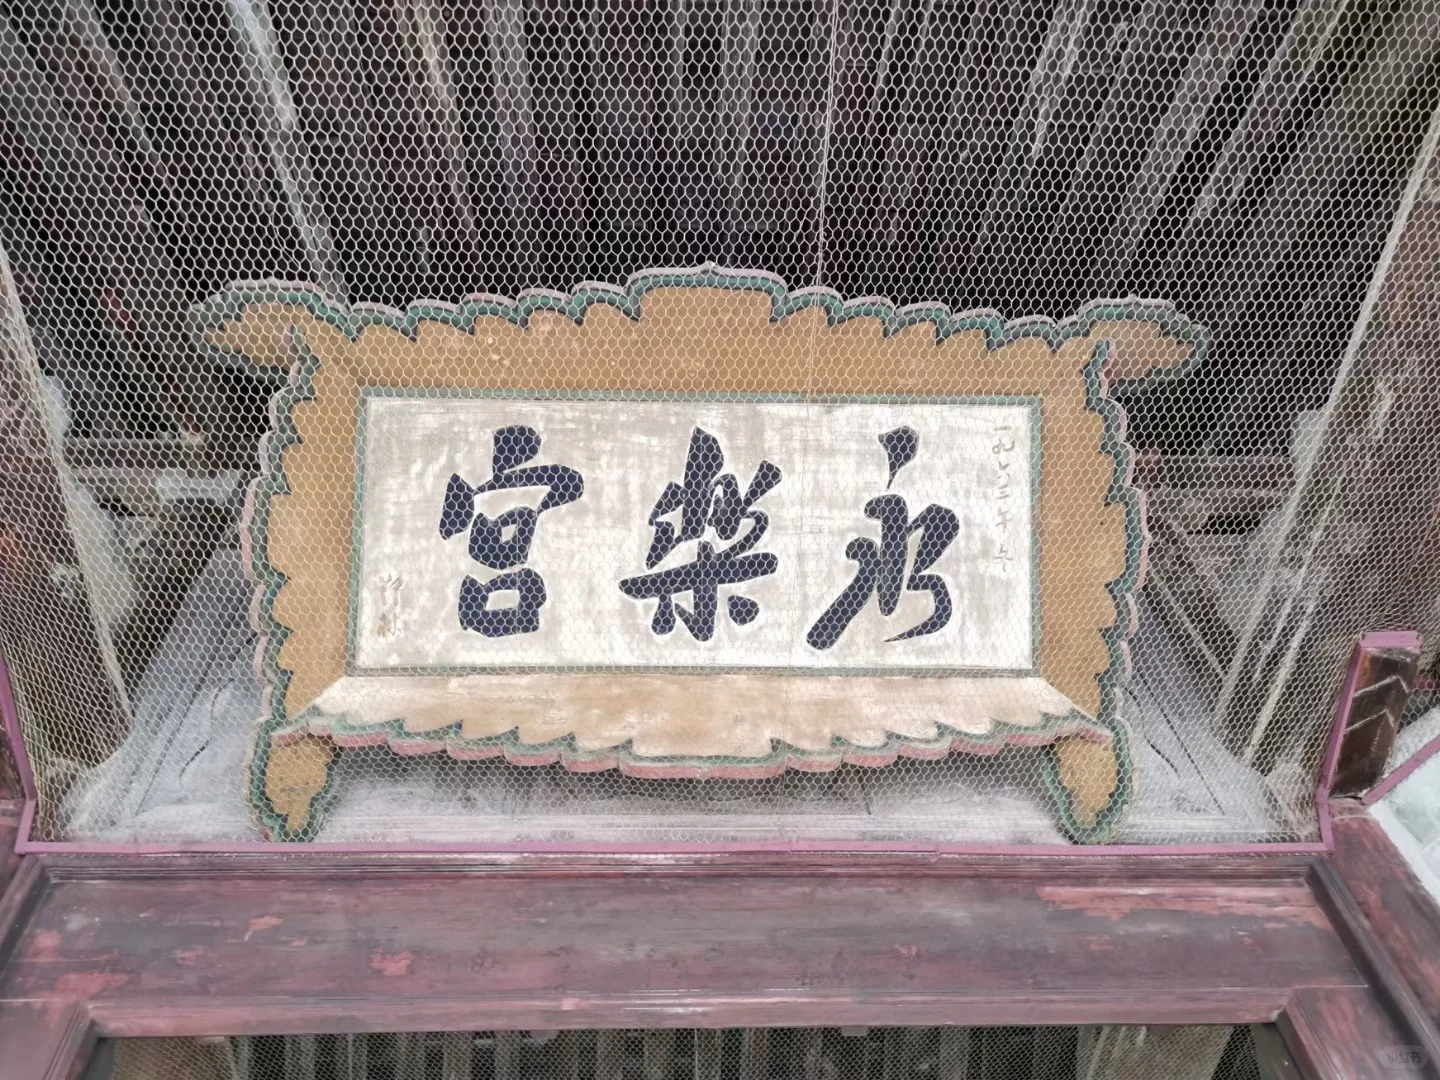 一九六三年
永樂宮